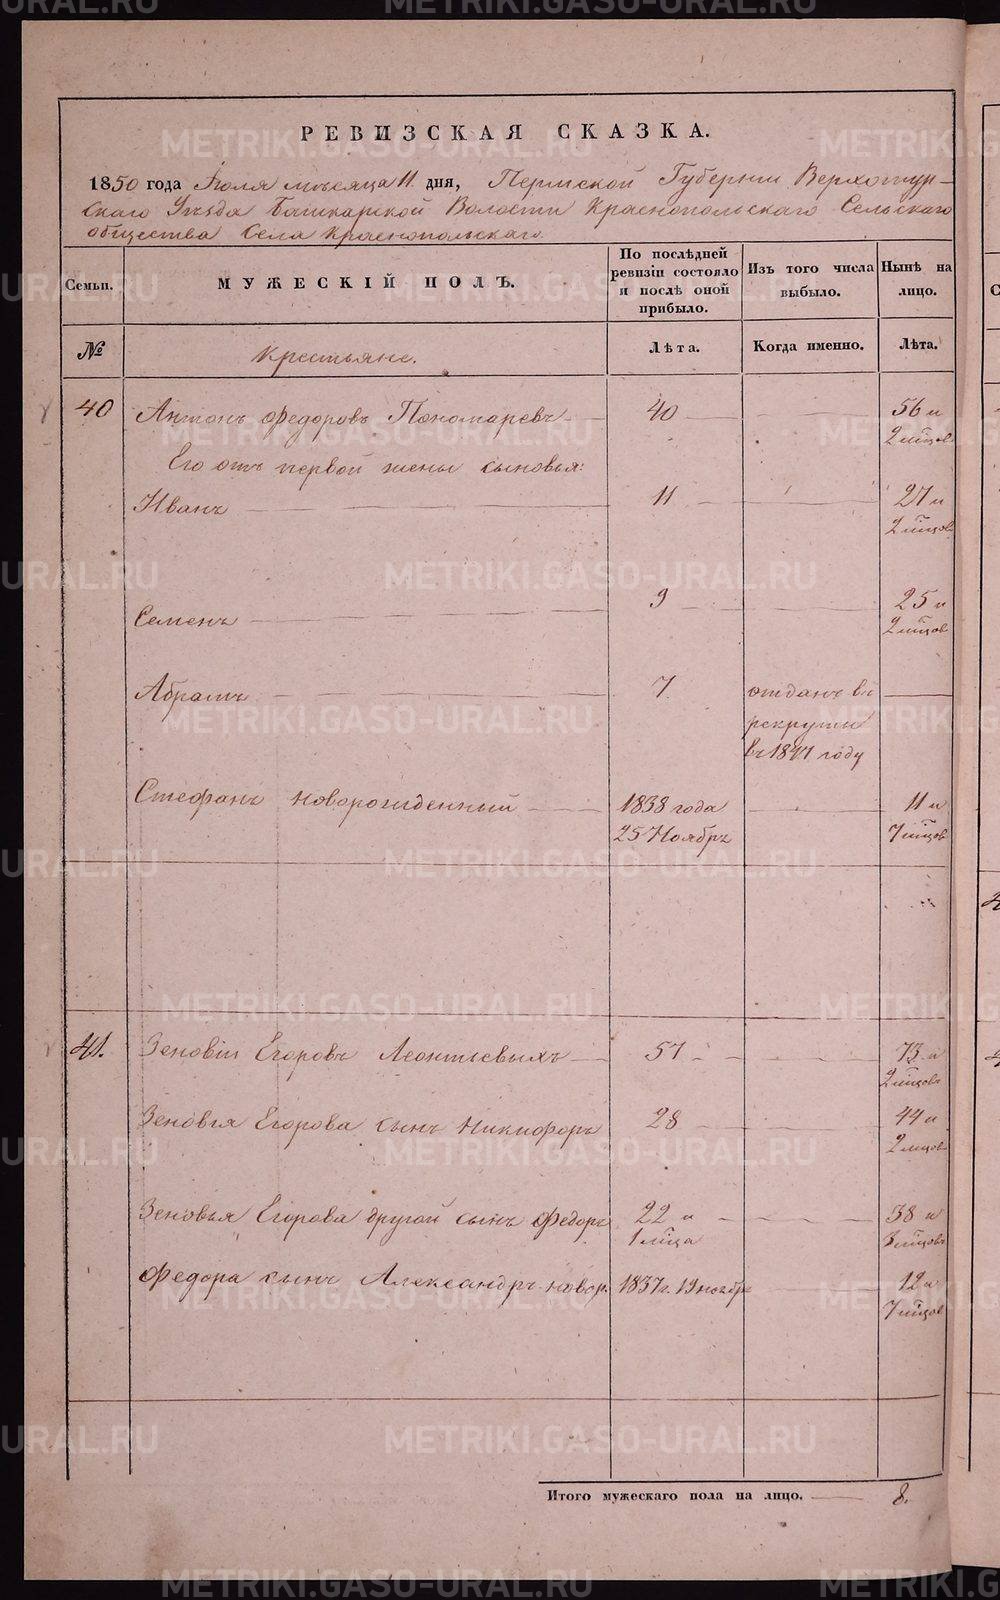 РЕВИЗСКАЯ СКАЗКА.
1850 года Іюля мѣсяца 11 дня, Пермской Губерніи Верхотур-
скаго Уѣзда Башкарской Волости Краснопольскаго Сельскаго
общества Села Краснопольскаго.
Семьи. МУЖЕСКІЙ ПОЛЪ. По послѣдней ревизіи состояло и послѣ оной прибыло. Изъ того числа выбыло. Нынѣ на лицо.
№ Крестьяне. Лѣта. Когда именно. Лѣта.
40 Антонъ Федоровъ Пономаревъ 40 56 и
2 мѣсяцов
Его отъ первой жены сыновья:
Иванъ 11 27 и
2 мѣсяцов
Семенъ 9 25 и
2 мѣсяцов
Абрамъ 7 отданъ въ
рекруты
въ 1847 году
Стефанъ новорожденный 1838 года 11 и
25 Ноябрь 7 мѣсяцов
41. Зеновій Егоровъ Леонтьевыхъ 57 73 и
2 мѣсяцовъ
Зеновья Егорова сынъ Никифоръ 28 44 и
2 мѣсяцов
Зеновья Егорова другой сынъ Федоръ 22 и 38 и
1 мѣсяца 3 мѣсяцовъ
Федора сынъ Александръ новор. 1837 г. 19 ноябр 12 и
7 мѣсяцов
Итого мужескаго пола на лицо. 8.
METRIKI.GASO-URAL.RU